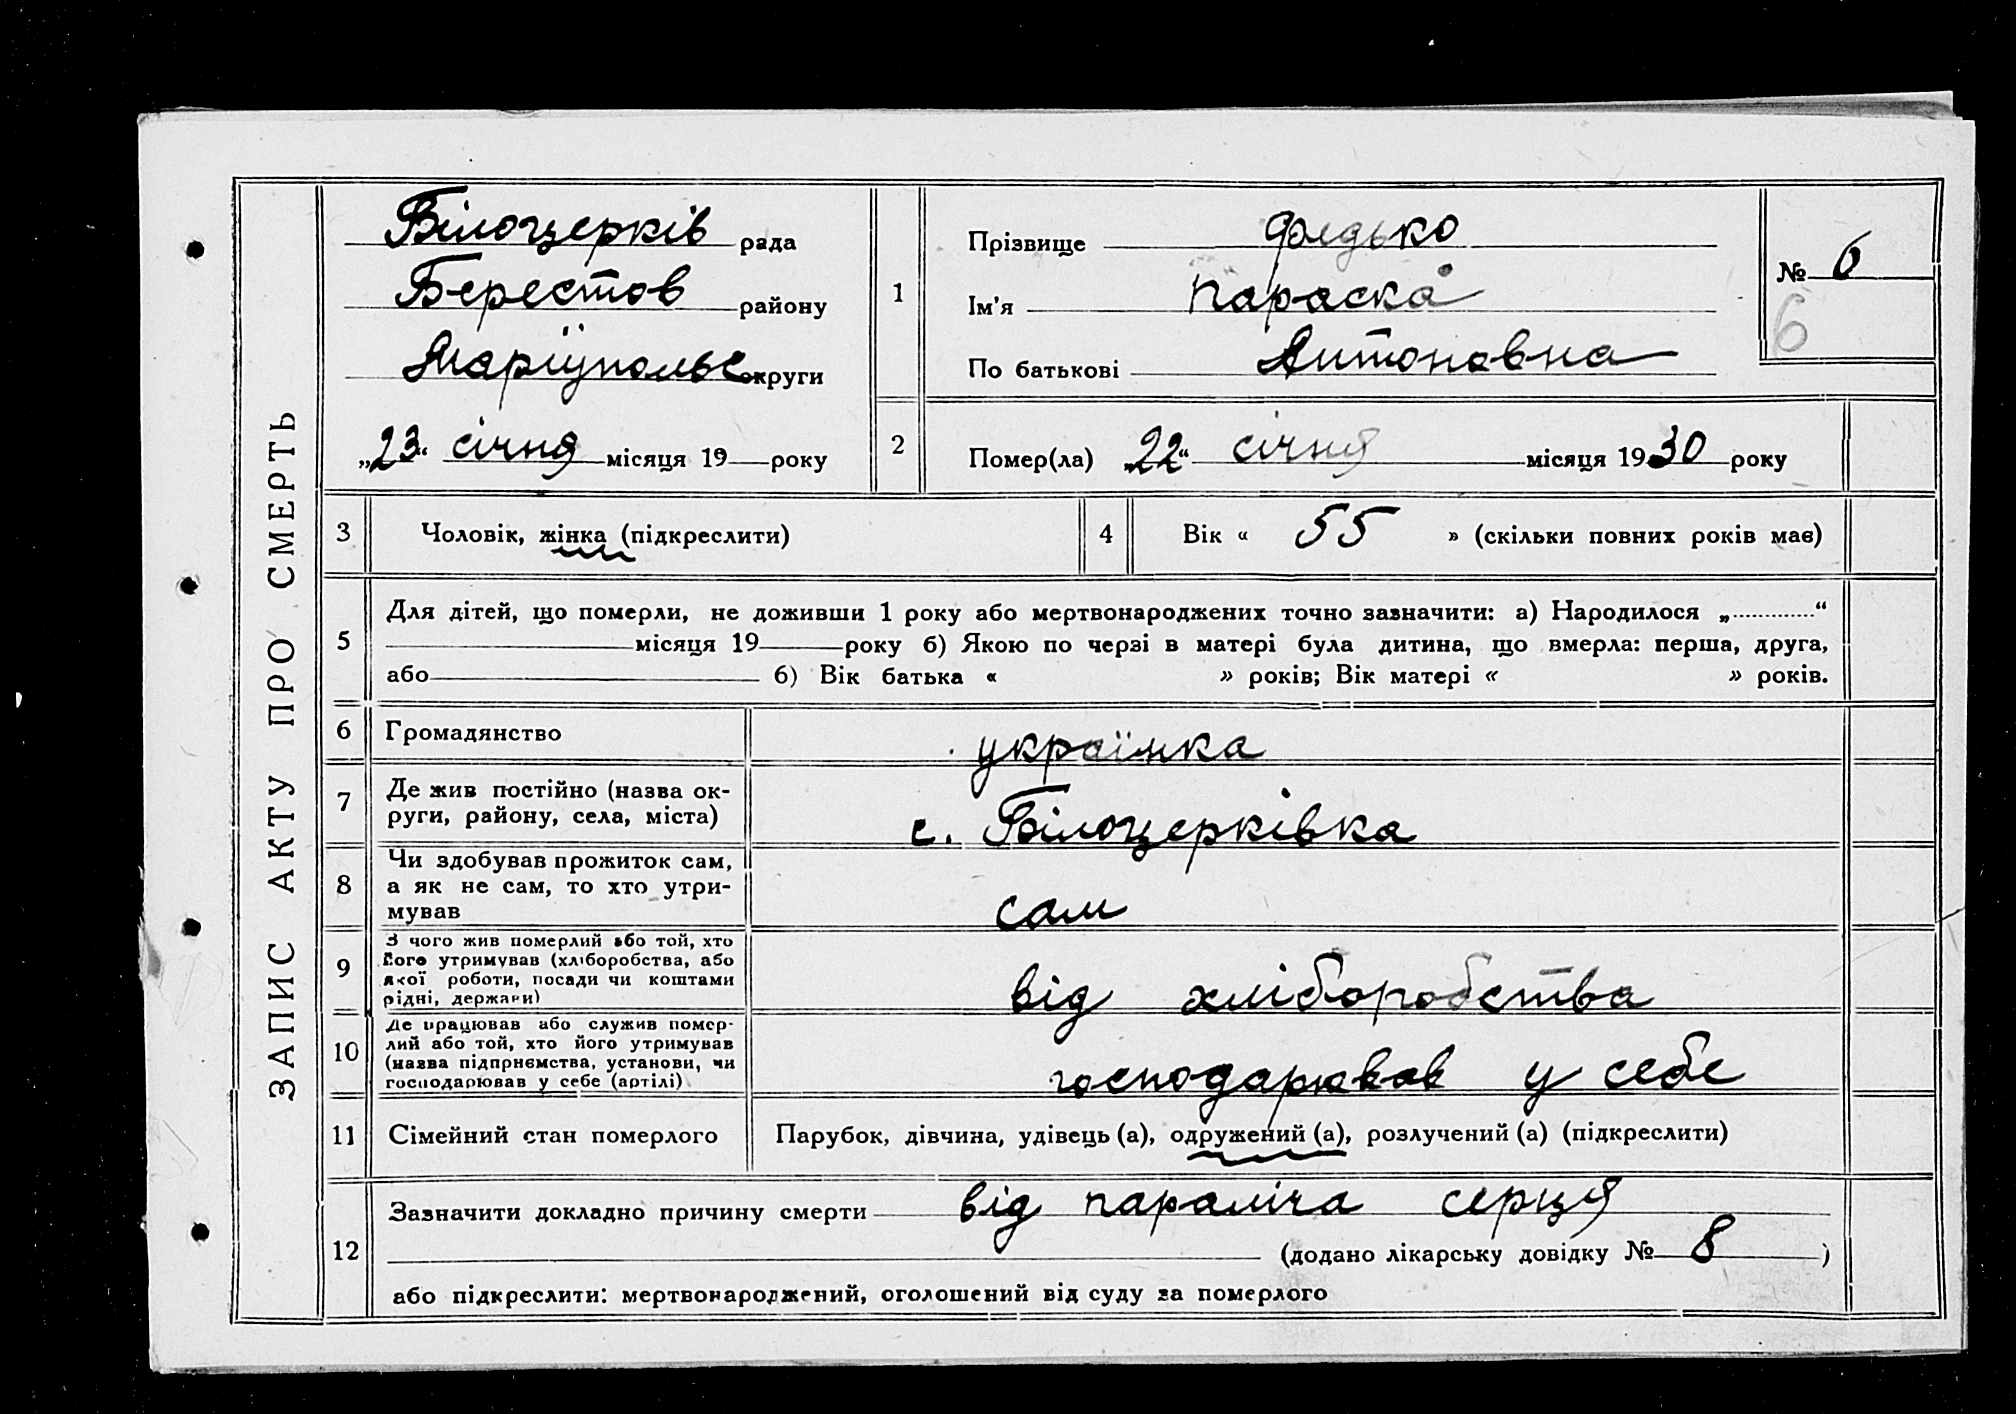 ЗАПИС АКТУ ПРО СМЕРТЬ
Білоцерків рада
Берестов району
Маріупольс округи
„23“ січня місяця 19 року
1
Прізвище Федько
Ім'я Параска
По батькові Антоновна
№ 6
6
2
Помер(ла) „22“ січня місяця 1930 року
3 Чоловік, жінка (підкреслити)
4 Вік « 55 » (скільки повних років має)
5
Для дітей, що померли, не доживши 1 року або мертвонароджених точно зазначити: а) Народилося „ “
місяця 19 року б) Якою по черзі в матері була дитина, що вмерла: перша, друга,
або б) Вік батька « » років; Вік матері « » років.
6 Громадянство українка
7 Де жив постійно (назва ок-
руги, району, села, міста) с. Білоцерківка
8 Чи здобував прожиток сам,
а як не сам, то хто утри-
мував сам
9 З чого жив померлий або той, хто
його утримував (хліборобства, або
якої роботи, посади чи коштами
рідні, держави) від хліборобства
10 Де працював або служив помер-
лий або той, хто його утримував
(назва підприємства, установи, чи
господарював у себе (артілі) господарював у себе
11 Сімейний стан померлого Парубок, дівчина, удівець (а), одружений (а), розлучений (а) (підкреслити)
12
Зазначити докладно причину смерти від параліча серця
(додано лікарську довідку № 8 )
або підкреслити: мертвонароджений, оголошений від суду за померлого